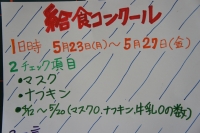 給食コンクール
1日時 5月23日(月)～5月27日(金)
2チェック項目
・マスク
・ナフキン
～5/20(マスク〇、ナフキン、牛乳〇の数)